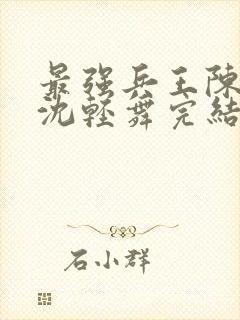 最强兵王陈
沈轻舞完结
石小群